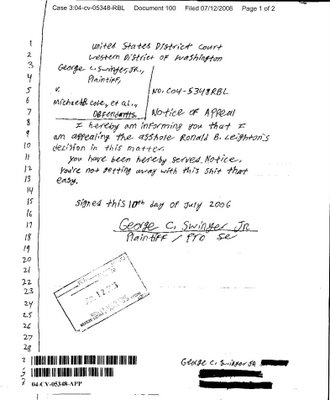 Case 3:04-cv-05348-RBL Document 100 Filed 07/12/2006 Page 1 of 2
United States District Court
Western District of Washington
George C. Swinger, Jr.,
Plaintiff,
v.
No. C04-5348RBL
Michael B. Cole, et al.,
Defendants.
Notice of Appeal
I hereby am informing you that I
am appealing the asshole Ronald B. Leighton's
decision in this matter.
You have been hereby served, Notice.
You're not getting away with this shit that
easy.
Signed this 10th day of July 2006
George C. Swinger Jr.
Plaintiff / Pro Se
George C. Swinger Jr.
04-CV-05348-APP